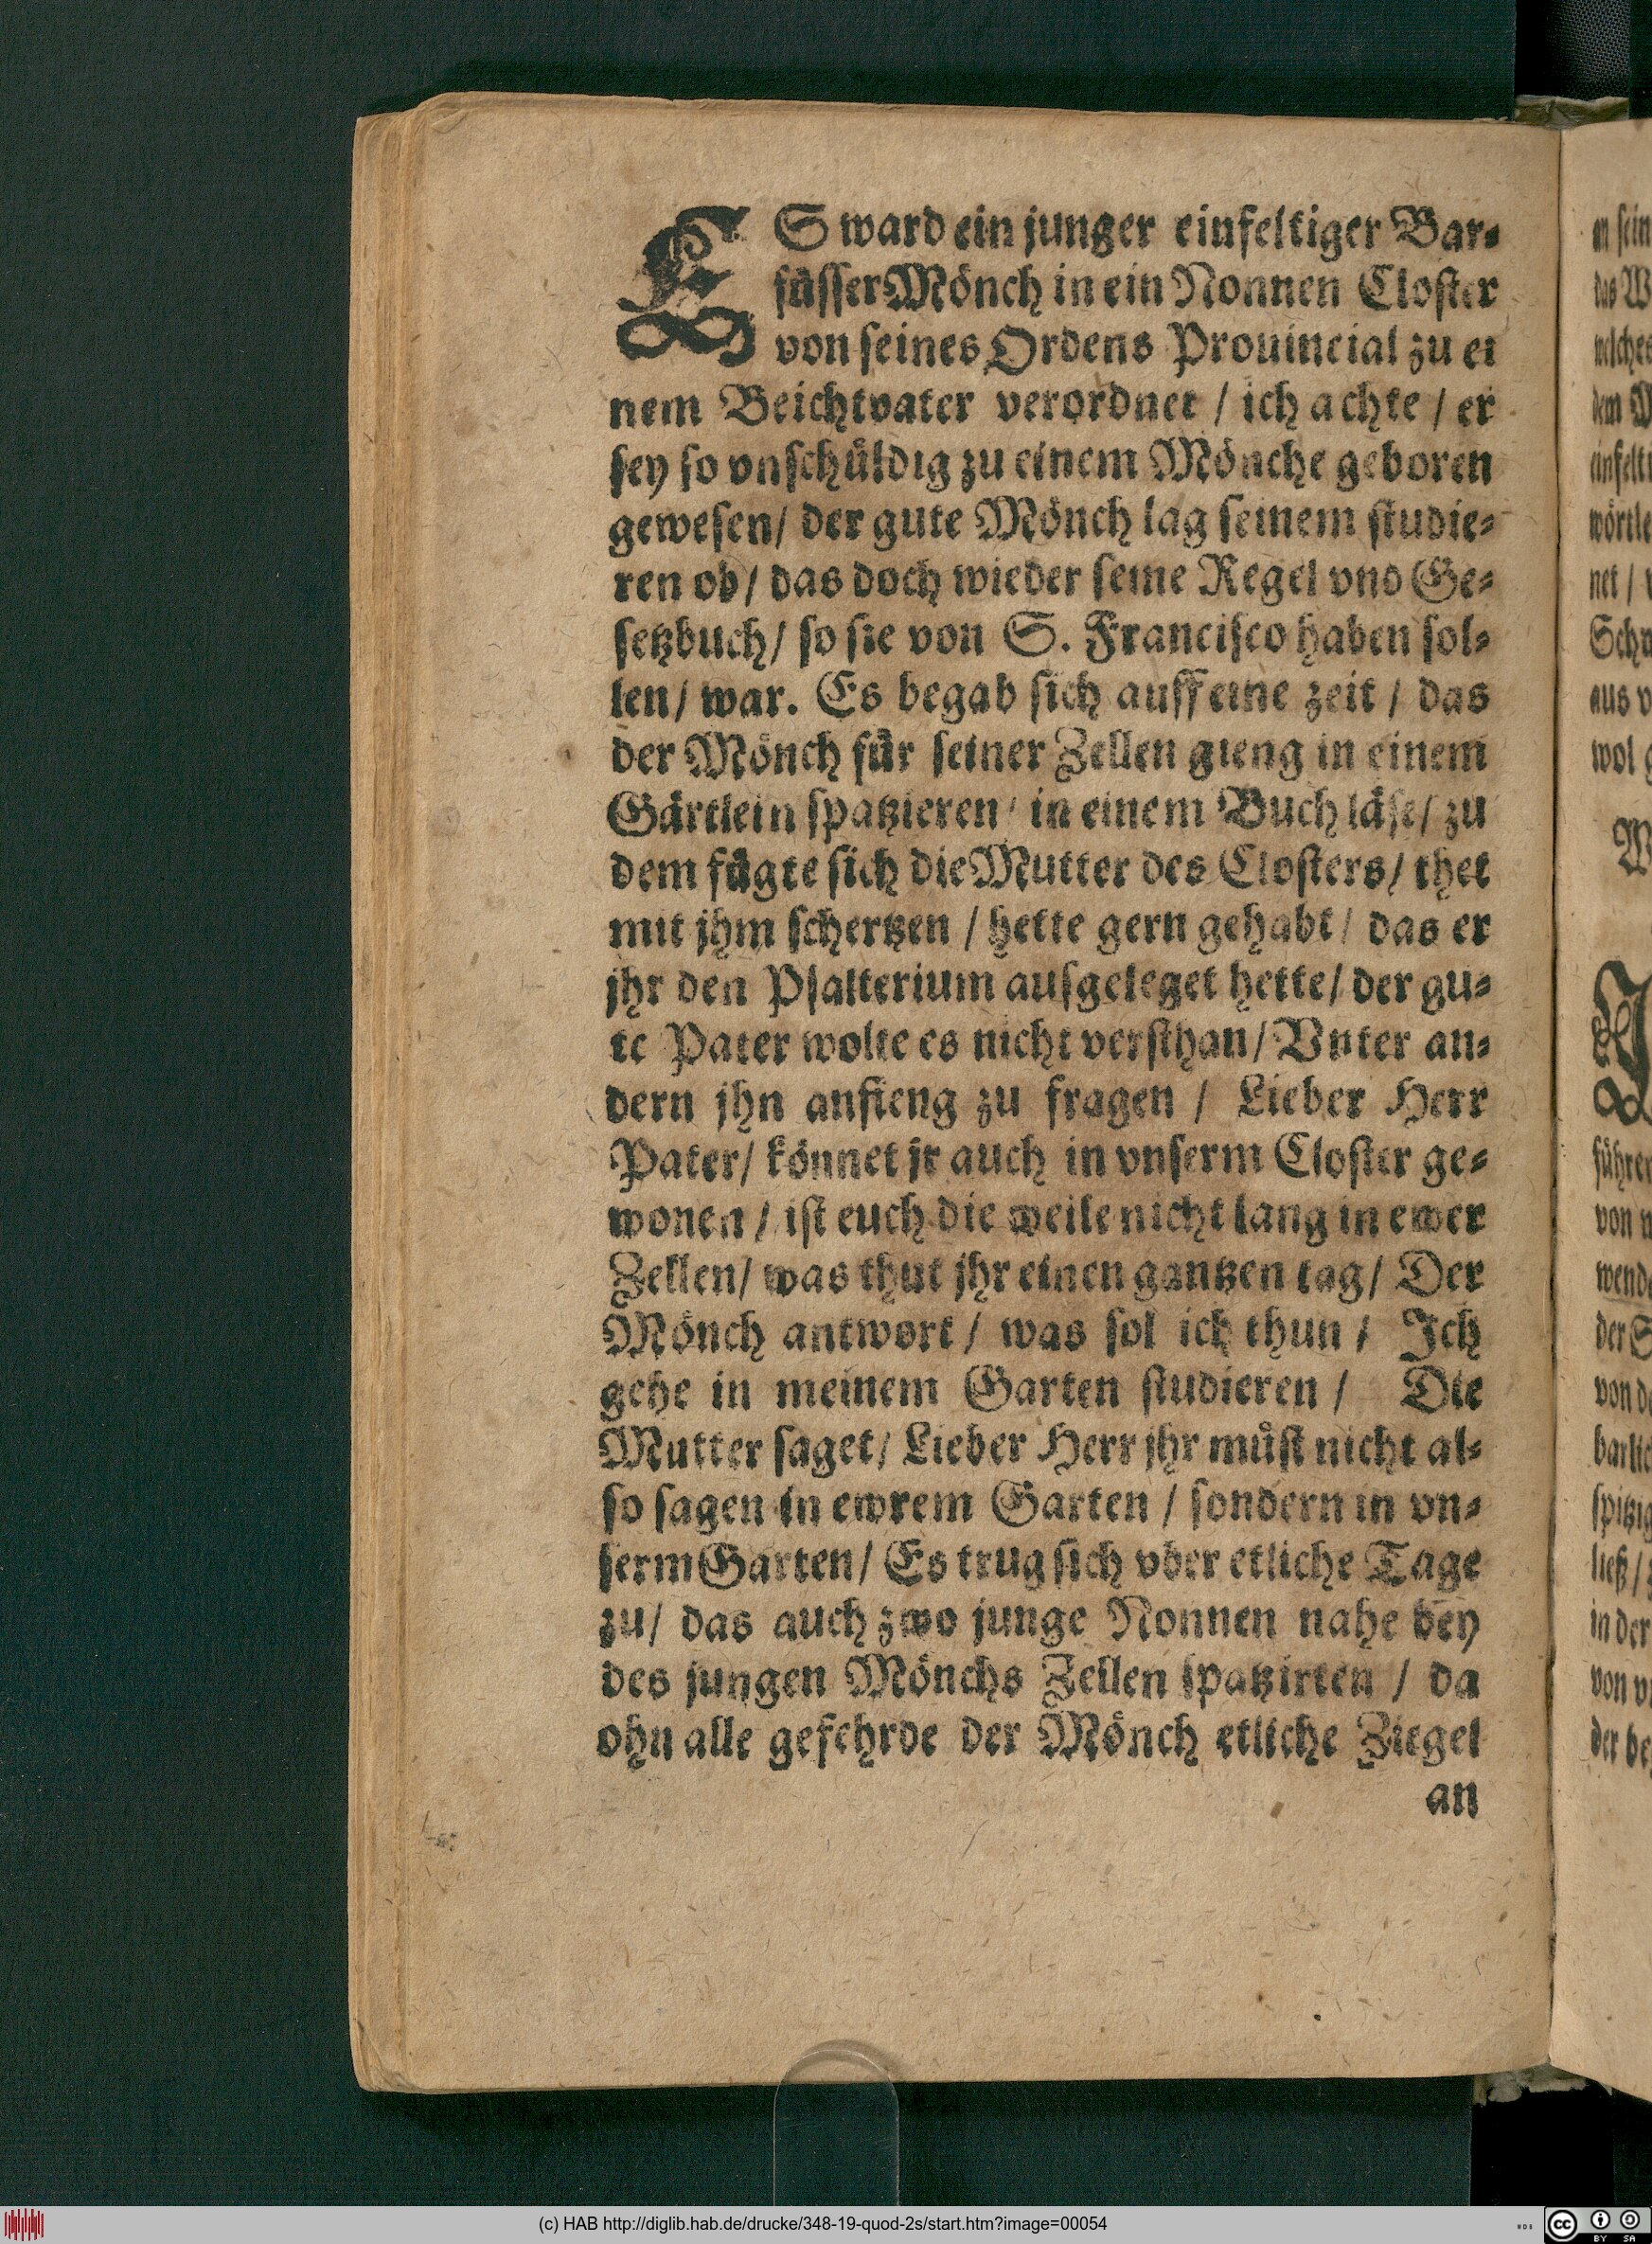 ES ward ein junger einfeltiger Bar⸗
fuͤsser Moͤnch in ein Nonnen Closter
von seines Ordens Prouincial zu ei
nem Beichtvater verordnet / ich achte / er
sey so vnschuͤldig zu einem Moͤnche geboren
gewesen / der gute Moͤnch lag seinem studie⸗
ren ob / das doch wieder seine Regel vnd Ge⸗
setzbuch / so sie von S. Francisco haben sol⸗
len / war. Es begab sich auff eine zeit / das
der Moͤnch fuͤr seiner Zellen gieng in einem
Gaͤrtlein spatzieren / in einem Buch laͤse / zu
dem fuͤgte sich die Mutter des Closters / thet
mit jhm schertzen / hette gern gehabt / das er
jhr den Psalterium ausgeleget hette / der gu⸗
te Pater wolte es nicht versthan / Vnter an⸗
dern jhn anfieng zu fragen / Lieber Herr
Pater / koͤnnet jr auch in vnserm Closter ge⸗
wonen / ist euch die weile nicht lang in ewer
Zellen / was thut jhr einen gantzen tag / Der
Moͤnch antwort / was sol ich thun / Ich
gehe in meinem Garten studieren / Die
Mutter saget / Lieber Herr jhr muͤst nicht al⸗
so sagen in ewrem Garten / sondern in vn⸗
serm Garten / Es trug sich vber etliche Tage
zu / das auch zwo junge Nonnen nahe bey
des jungen Moͤnchs Zellen spatzirten / da
ohn alle gefehrde der Moͤnch etliche Ziegel
an
(c) HAB http://diglib.hab.de/drucke/348-19-quod-2s/start.htm?image=00054